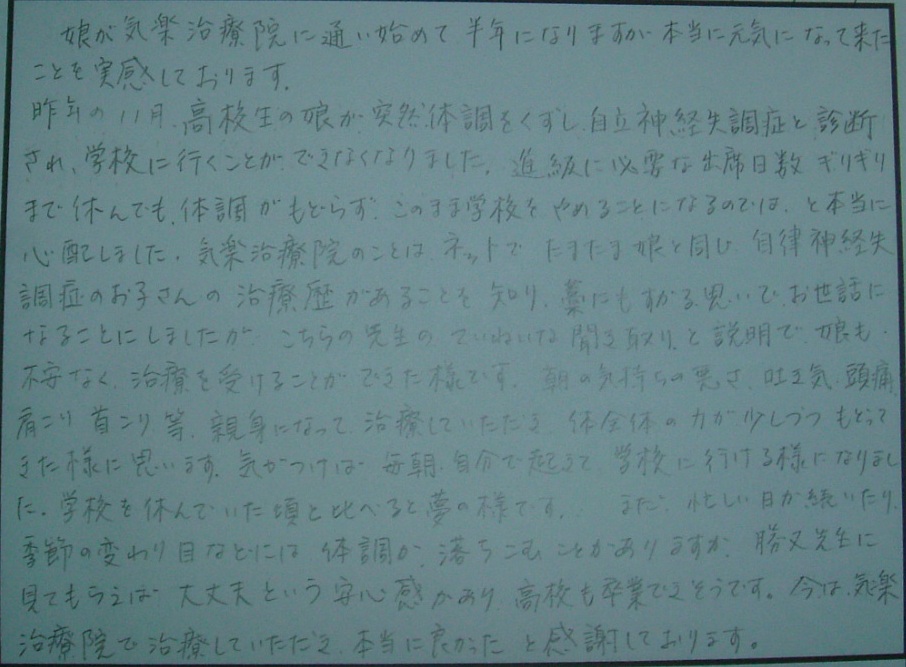 娘が気楽治療院に通い始めて半年になりますが本当に元気になって来た
ことを実感しております。
昨年の11月、高校生の娘が突然体調をくずし、自立神経失調症と診断
され、学校に行くことができなくなりました。進級に必要な出席日数ギリギリ
まで休んでも、体調がもどらず、このまま学校をやめることになるのでは、と本当に
心配しました。気楽治療院のことは、ネットでたまたま娘と同じ自律神経失
調症のお子さんの治療歴があることを知り、藁にもすがる思いで、お世話に
なることにしましたが、こちらの先生のていねいな聞き取りと説明で、娘も、
不安なく、治療を受けることができた様です。朝の気持ちの悪さ、吐き気、頭痛
肩こり、首こり等、親身になって治療していただき、体全体の力が少しづつもどって
きた様に思います。気がつけば毎朝、自分で起きて、学校に行ける様になりまし
た。学校を休んでいた頃と比べると夢の様です。まだ、忙しい日が続いたり、
季節の変わり目などには体調が、落ちこむことがありますが、勝又先生に
見てもらえば大丈夫という安心感があり、高校も卒業できそうです。今は、気楽
治療院で治療していただき、本当に良かったと感謝しております。